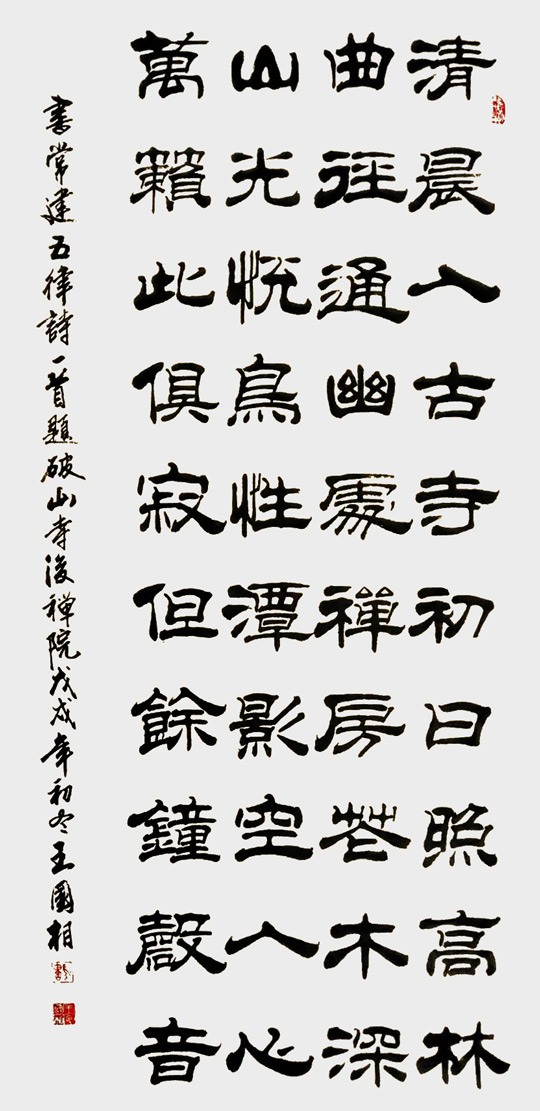 清晨入古寺初日照高林
曲徑通幽處禪房花木深
山光悅鳥性潭影空人心
萬籟此俱寂但餘鐘磬音
書常建五律詩一首題破山寺後禅院戊戌年初冬王國相